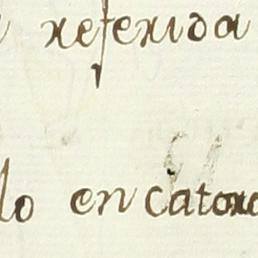 referida
lo en cator